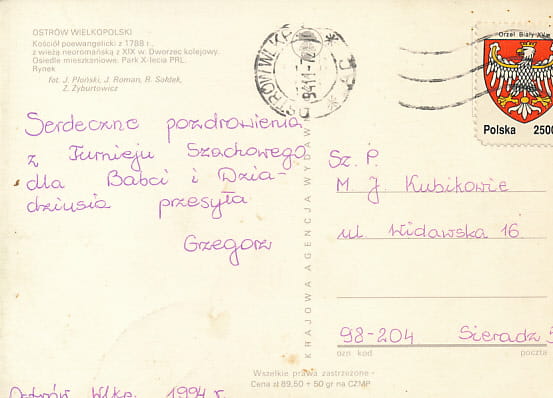 OSTRÓW WIELKOPOLSKI
Kościół poewangelicki z 1788 r.,
z wieżą neoromańską z XIX w. Dworzec kolejowy.
Osiedle mieszkaniowe. Park X-lecia PRL.
Rynek
fot. J. Płoński, J. Roman, R. Sołtek,
Z. Żyburtowicz
Orzeł Biały XV w.
Polska 2500
Serdeczne pozdrowienia
z Turnieju Szachowego
dla Babci i Dzia-
dziusia przesyła
Grzegorz
KRAJOWA AGENCJA WYDAW
Sz. P.
M. J. Kubikowie
ul Widawska 16
98-204 Sieradz 5
ozn kod poczta
Wszelkie prawa zastrzeżone
Cena zł 89,50 + 50 gr na CZMP
Ostrów Wlkp. 1994 r.